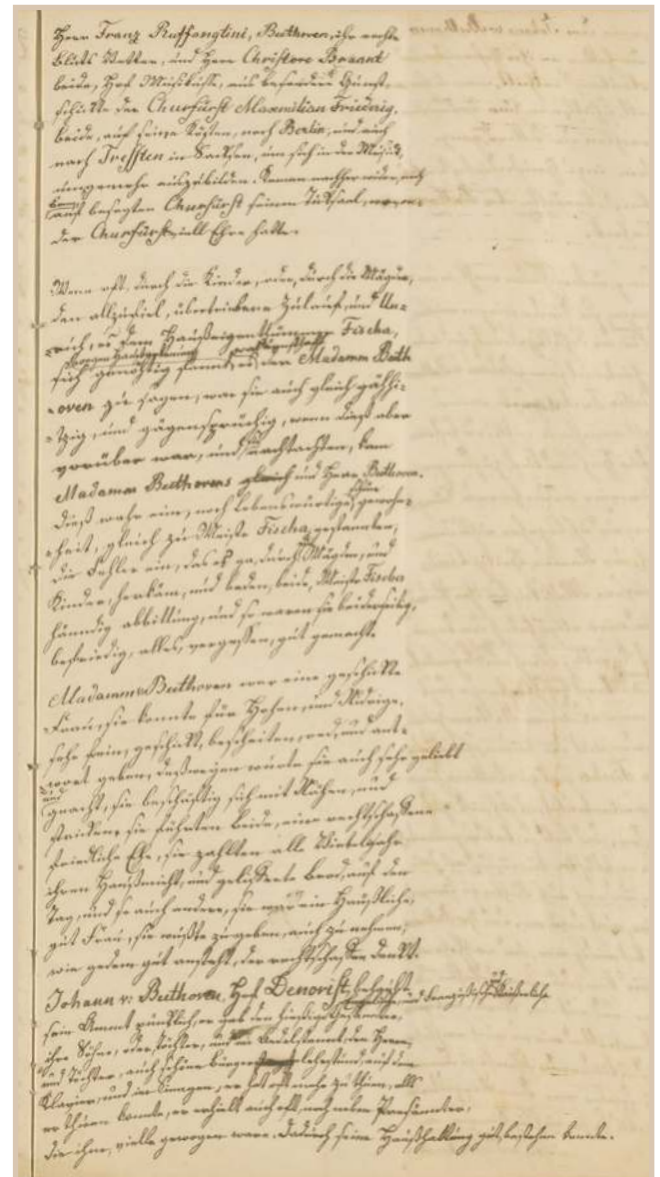 Herrn Franz Ruffangtini, Beethoven, ihr rechte
bluts Vetter, und Herr Christove Braant
beide, Hof Musikusse, aus besondere Gunst,
schickte der Churfürst Maxmilian Friedrig,
beide, auf seine Kösten, nach Berlin, und auch
nach Treßten in Sachsen, um sich in der Musick,
ungemehr auszubilden. Kamen nachher wider, auf
besagten Churfürst seinem
der Churfürst viell Ehre hatte.
Wenn oft, durch die Kinder, oder, durch die Mägde,
den allzuviel, übertriebene Zulauf, und Un-
ruh, es dem Haußeigenthümmer Fischa,
sich genöthig fande, es der Madamm Beeth
oven zu sagen, war sie auch gleich gähhi-
tzig, und gägensprüchig, wenn dieß aber
vorüber war, und nachdachten, kam
Madamm Beethovens gleich und Herr Bethoven.
Dieß wahr eine, noch lebenswürtige, gewohn-
heit, gleich zu Meiste Fischa, gestanden,
die Fehler ein, das es ja, durch Mägden, und
Kinder, herkäm, und beden, beide, Meiste Fischer
händig abbittung, und so waren sie beiderseitig,
befriedig, alles, vergessen, gut gemacht.
Madamm Beethoven war eine geschickte
Frau, sie konnte für Hohen, und Nidrige,
sehr fein, geschickt, bescheiten, red, und ant-
wort geben, deßwegen würde sie auch sehr geliebt
und geacht, sie beschäftig sich mit Nähen, und
stricken, sie führten beide, eine rechtschaffene
friedliche Ehe, sie zahlten alle Virteljahr
ihren Haußmieht, und gelieferte brod, auf den
Tag, und so auch andere, sie war ein Haußliche,
gut Frau, sie wußte zu geben, auch zu nehmen,
wie jedem gut ansteht, der rechtschaffen denkt.
Johann v: Beethoven, Hof Denorist,
sein Ammt pünklich, er gab den hiesige
ihre Söhne, oder, Töchter,
und Töchter, auch schöne bürger auf dem
Klavier, und im Singen, er hat oft mehr zu thun, als
er thuen konnte, er erhielt auch oft, noch neben Presänder,
die ihm, vielle gewogen ware. Dadurch seine Haußhaltung gut, bestehen konnte.